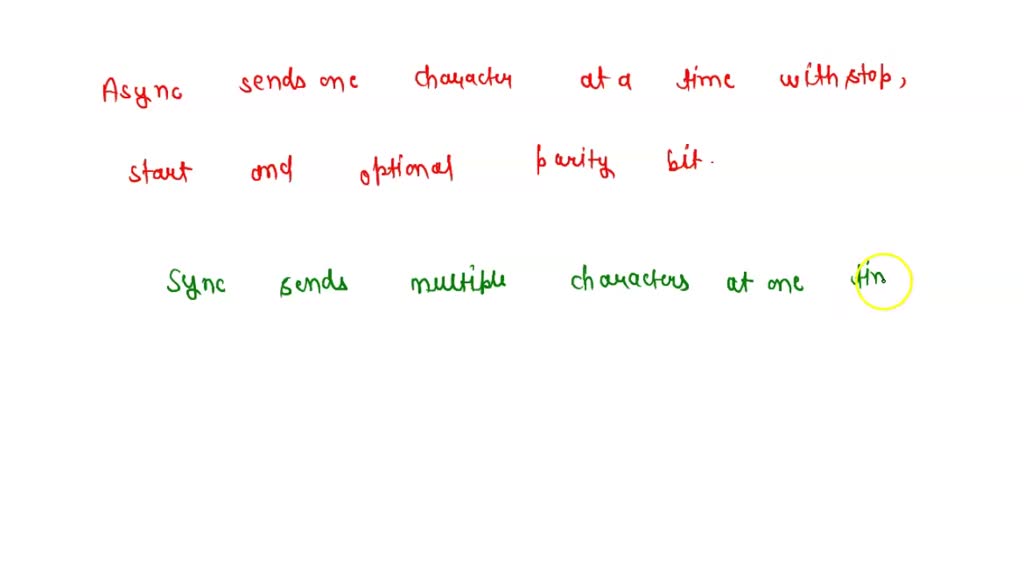 Async sends one character at a time with stop,
start and optional parity bit.
Sync sends multiple characters at one tim